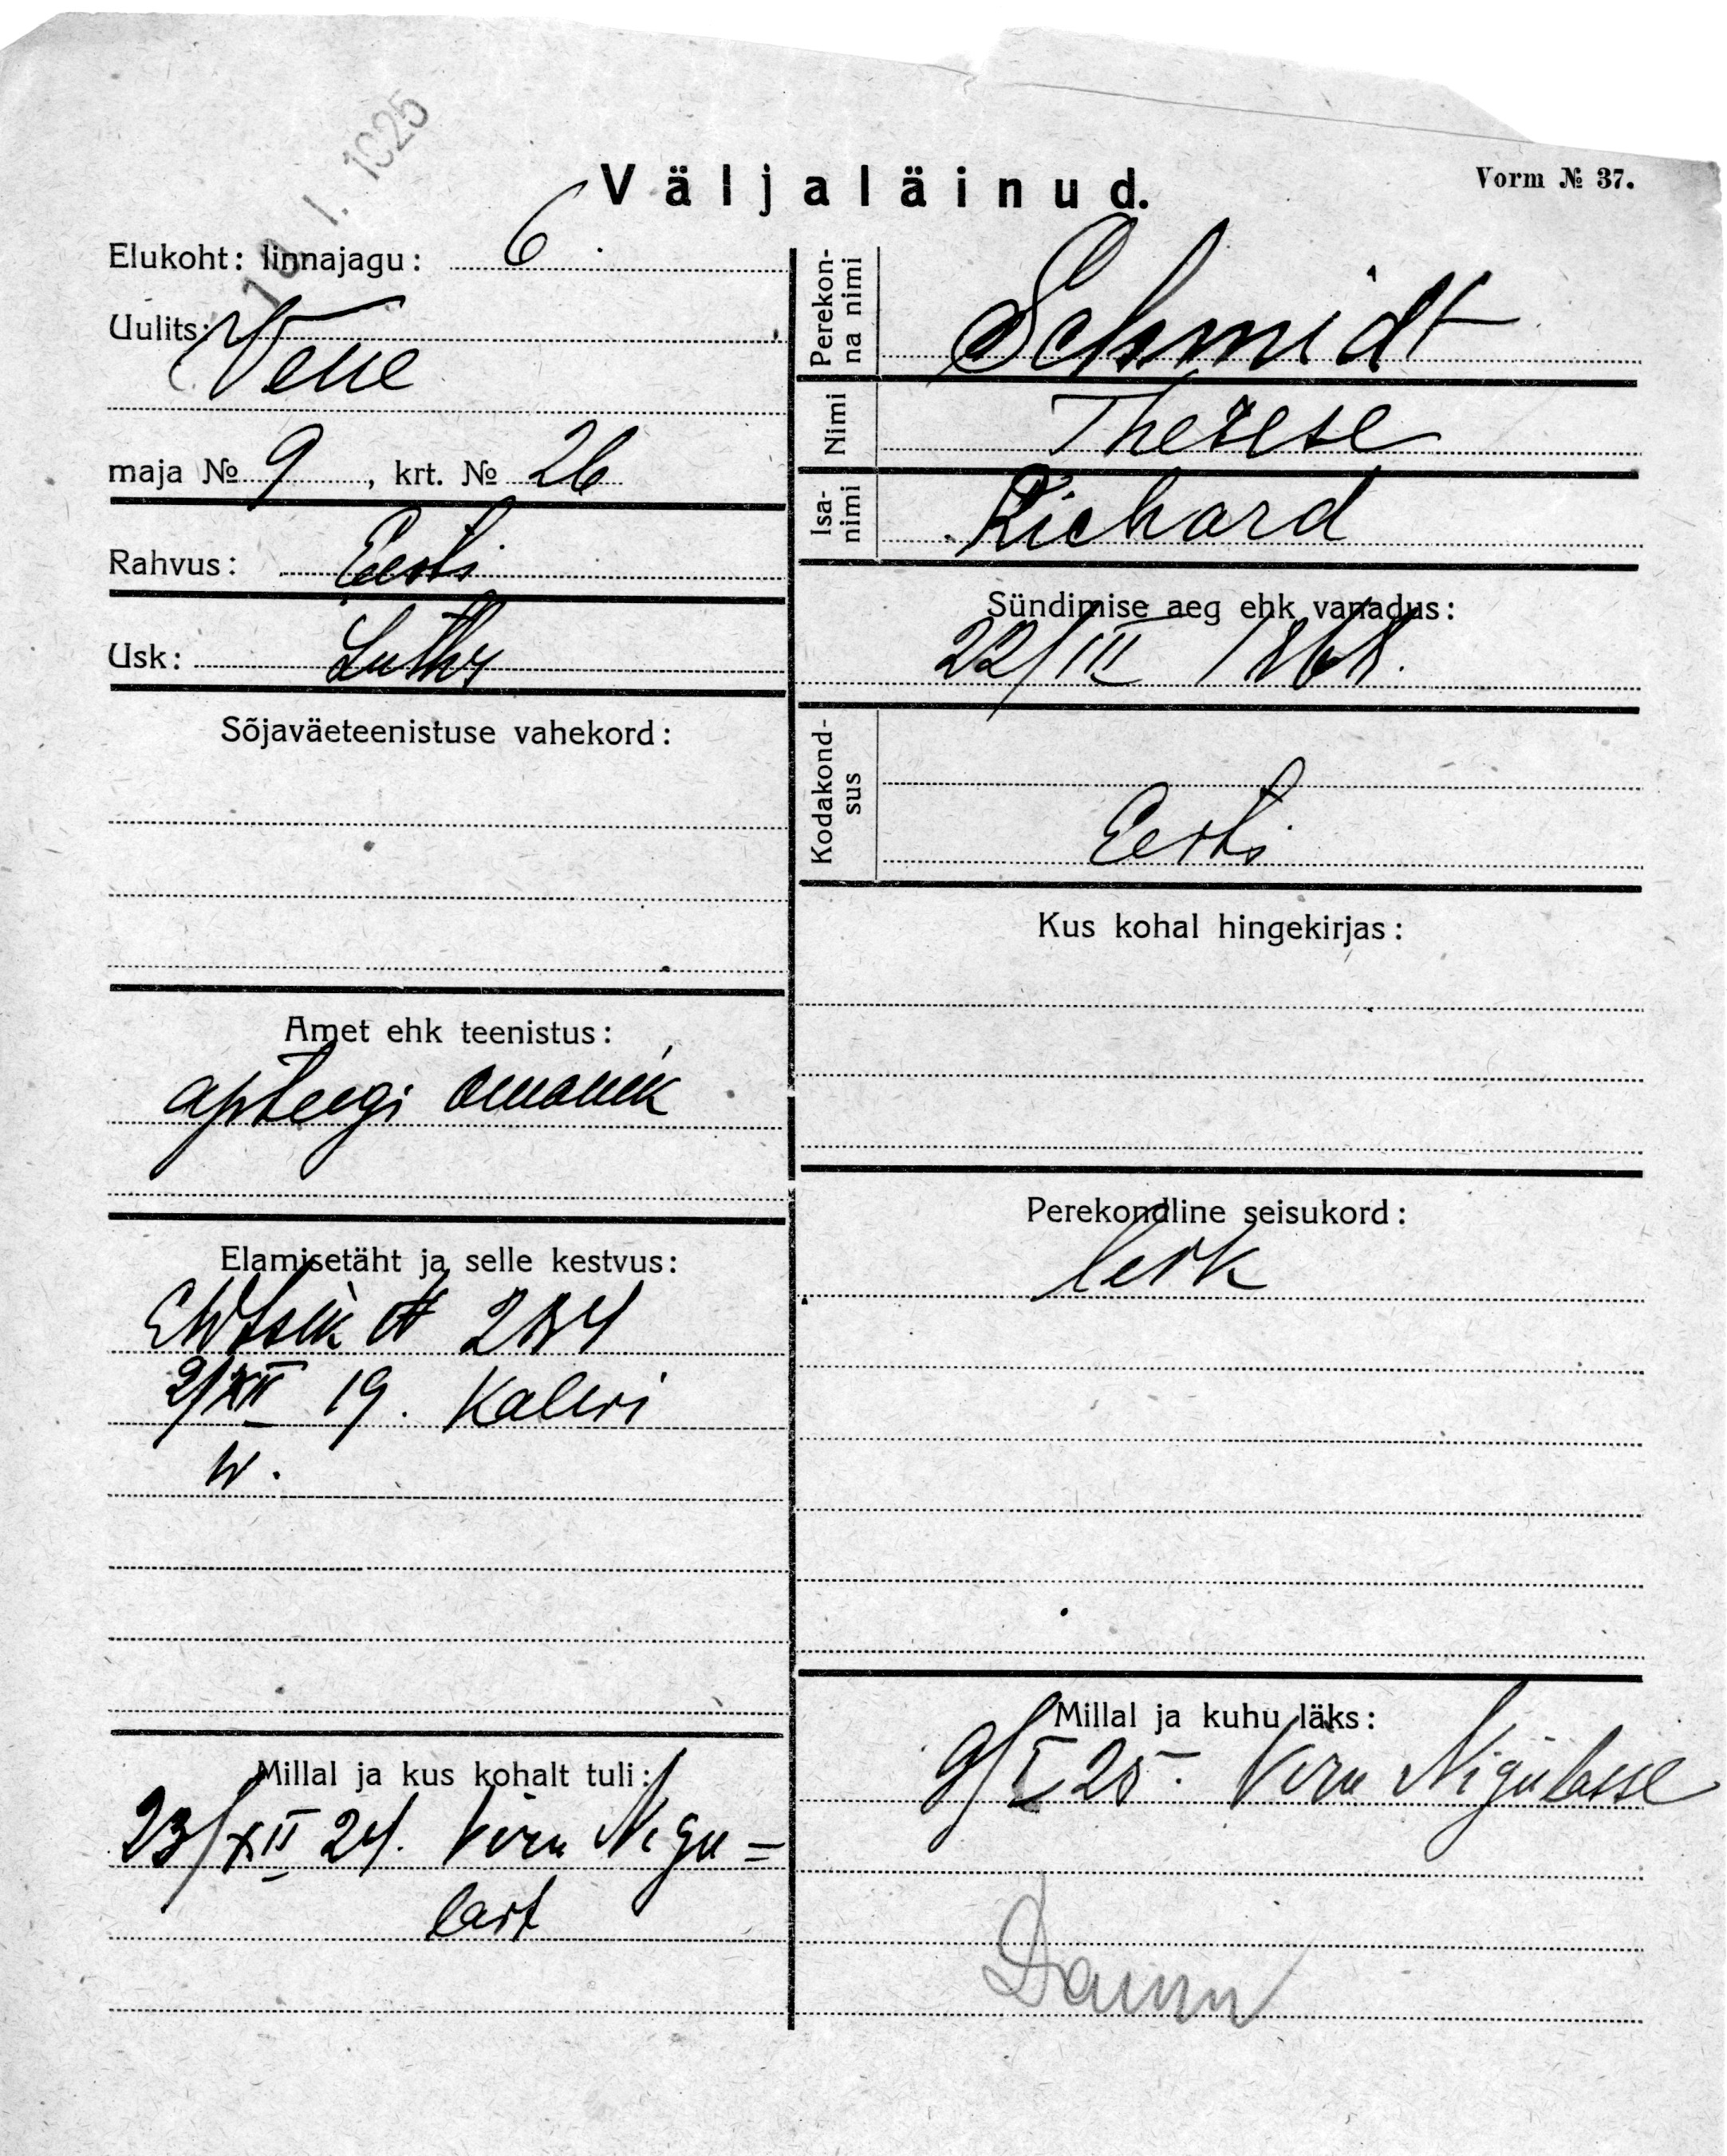 Väljaläinud.
Vorm № 37.
Elukoht: linnajagu: 6
Uulits:
Vene
maja № 9, krt. № 26
Rahvus: Eesti
Usk: Luth
Sõjaväeteenistuse vahekord:
Amet ehk teenistus:
apteegi omanik
Elamisetäht ja selle kestvus:
№ 284
2/XII 19. Kalevi
w.
Millal ja kus kohalt tuli:
23/XII 24. Viru Nigu=
last
Perekonna nimi
Schmidt
Nimi
Therese
Isanimi
Richard
Sündimise aeg ehk vanadus:
22/III 1868.
Kodakondsus
Eesti
Kus kohal hingekirjas:
Perekondline seisukord:
lesk
Millal ja kuhu läks:
9/I 25. Viru Nigulasse